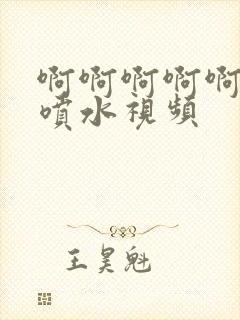 啊啊啊啊啊
噴水視頻
王昊魁